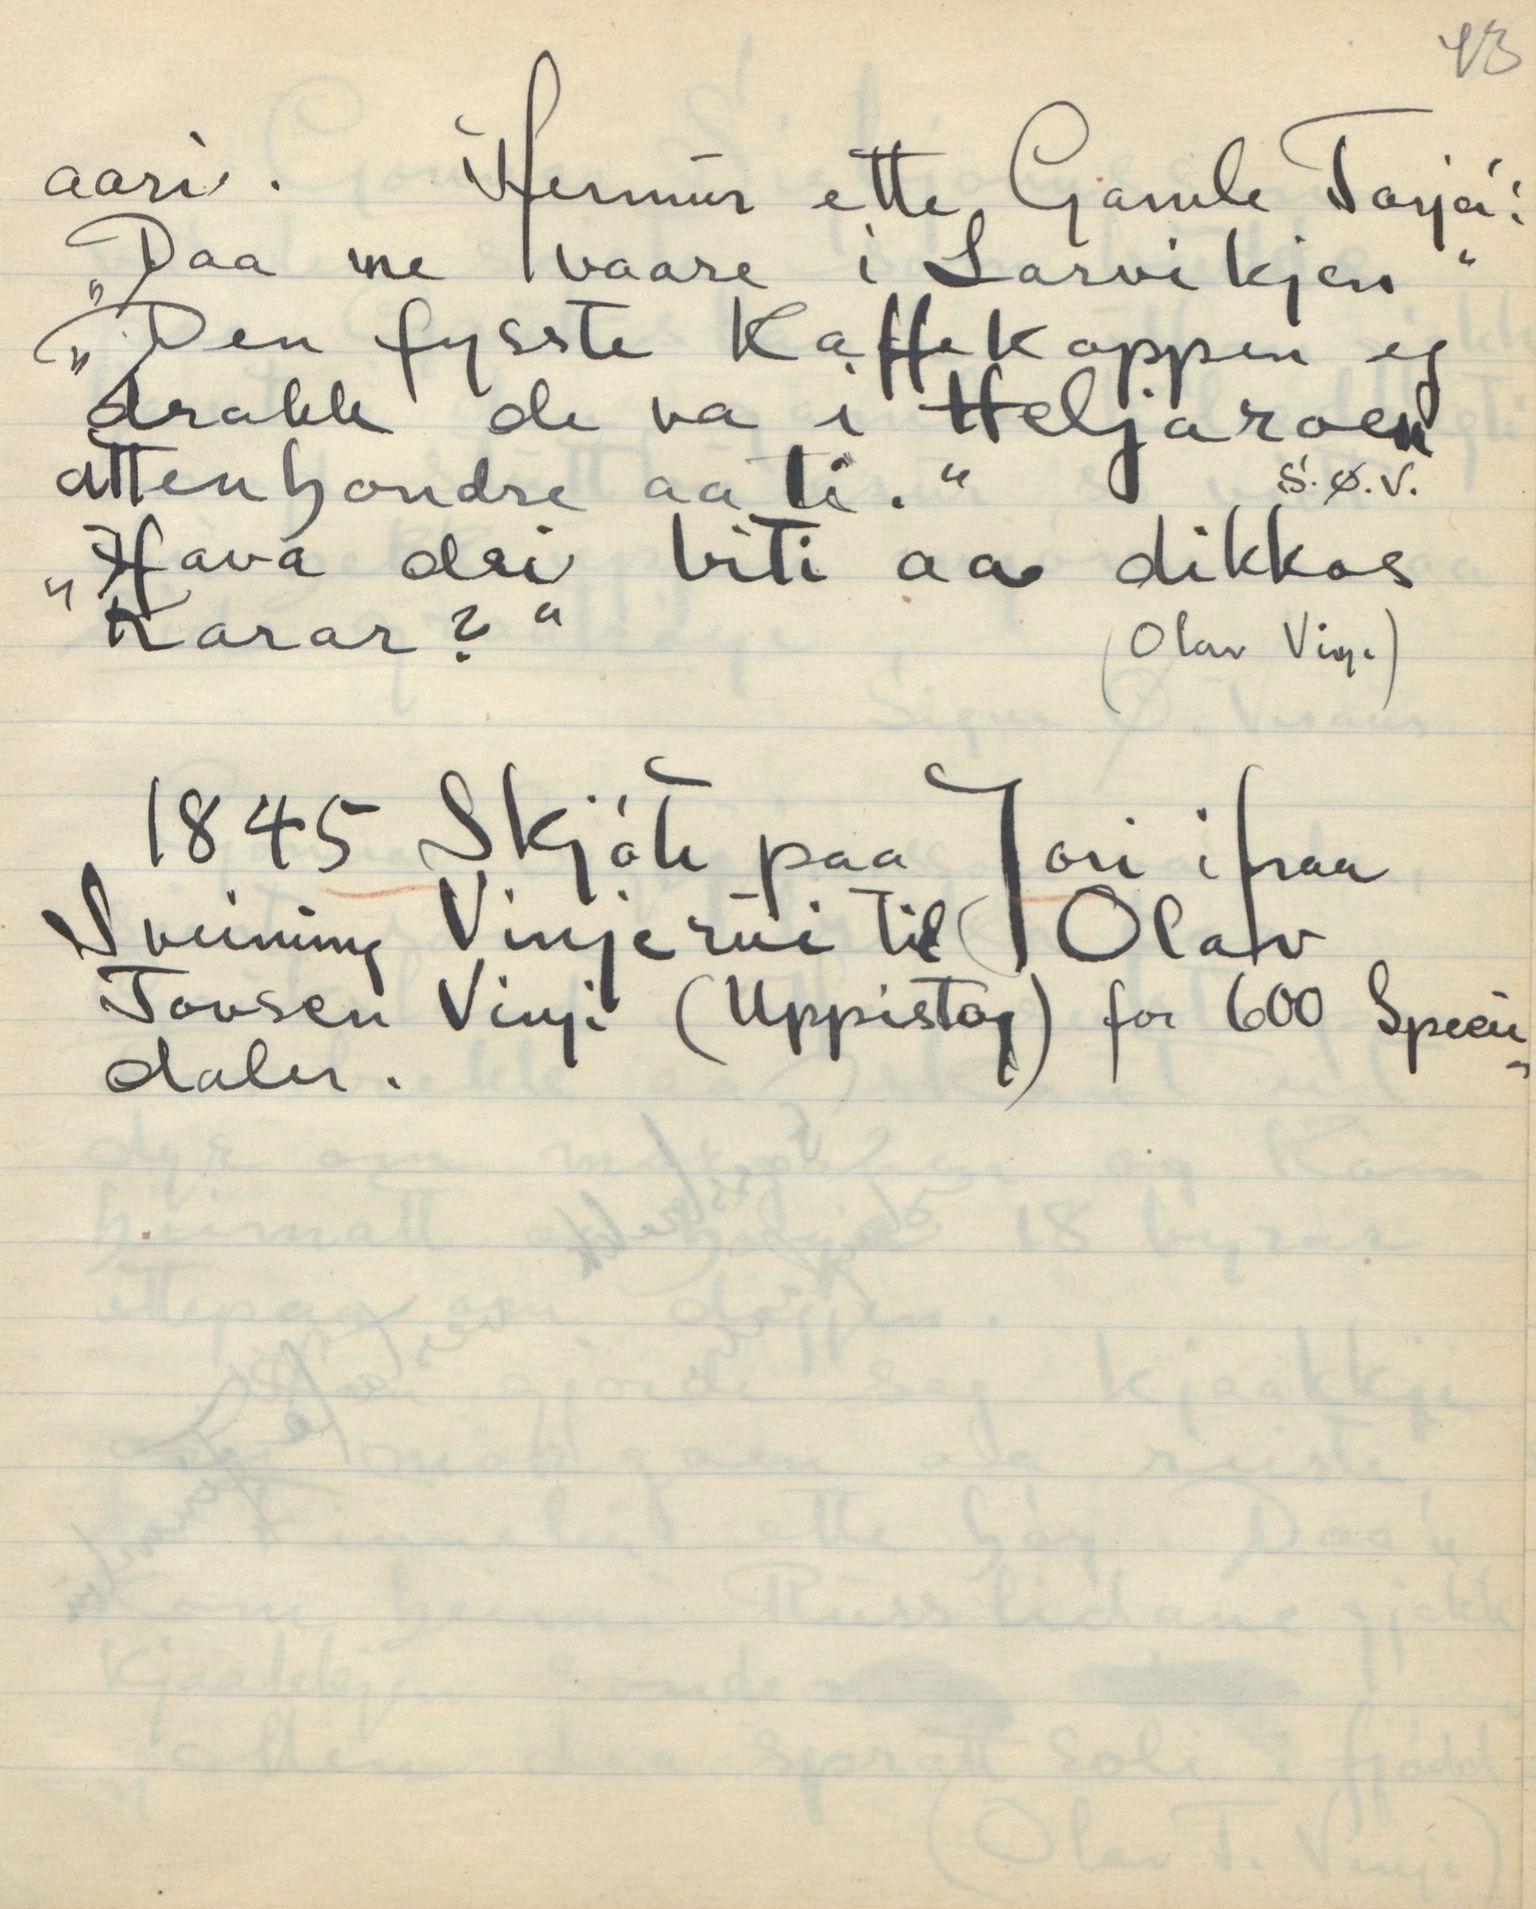 43
aari. Hermur ette Gamle Torjå:
„Daa me vaare i Larvikjen"
„Den fysste Kaffekoppen eg
drakk de va i Heljaroen
attenhondre aa ti." S.Ø.V.
„Hava dei viti aa dikkos
Karar?" (Olav Vinje)
1845 Skjøte paa Jori ifraa
Sveinung Vinjerui til Olav
Tovsen Vinje (Uppistog) for 600 Speciu-
daler.